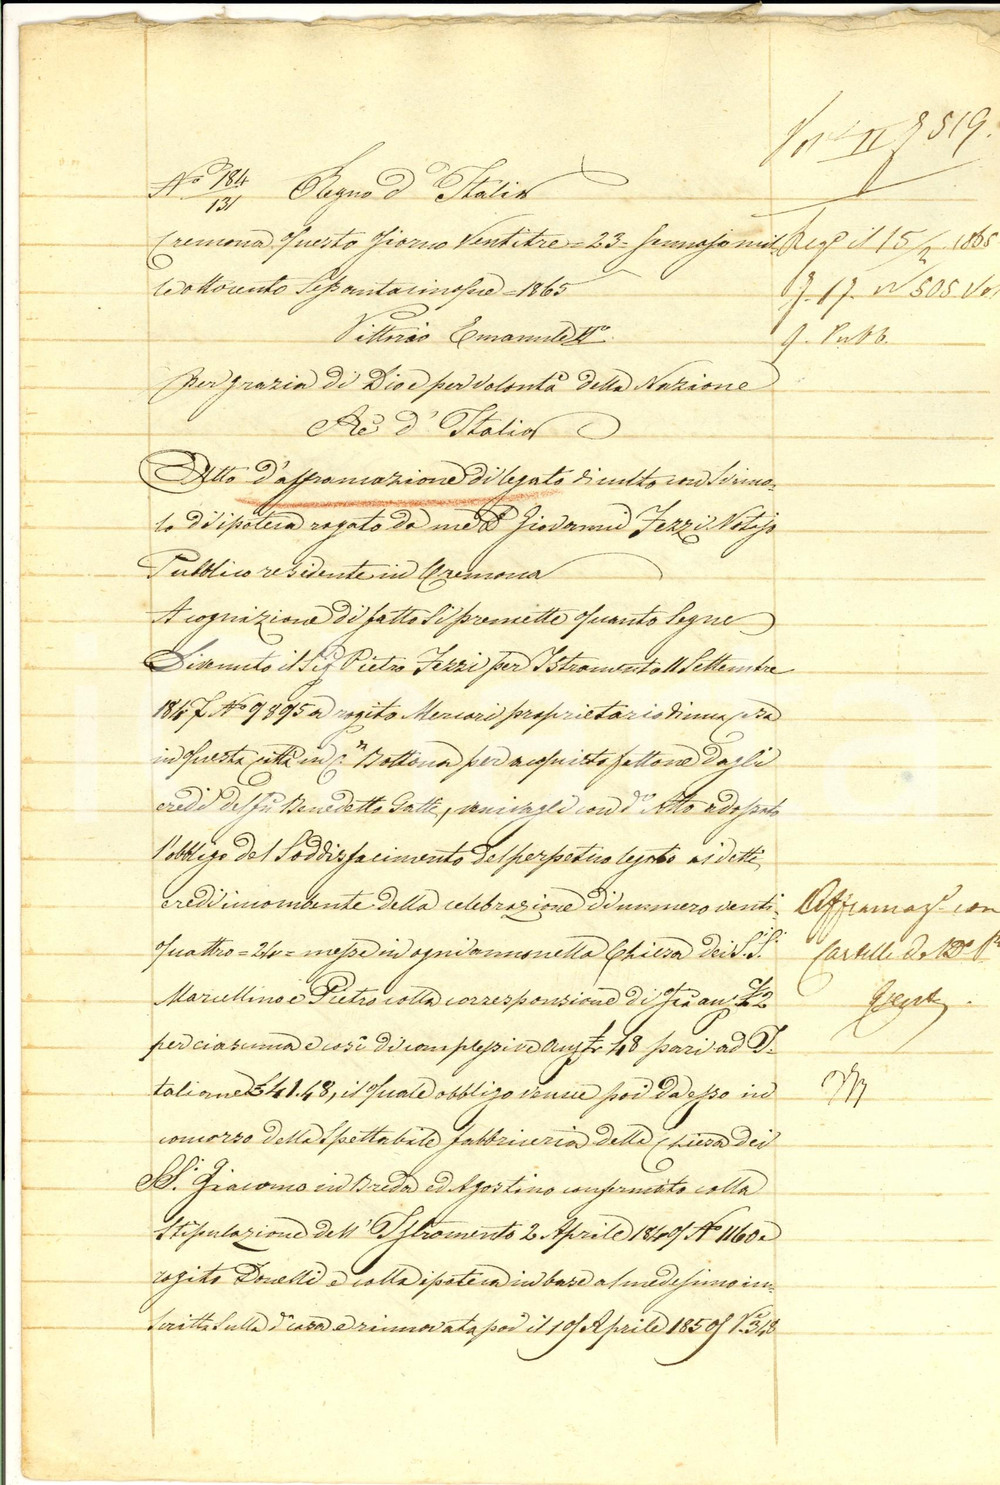 Vol. II f 519.
N° 184/131 Regno d'Italia
Cremona questo giorno Ventitre = 23 = Gennajo mil
leottocento Sessantacinque = 1865
Vittorio Emanuele II°
per grazia di Dio e per volontà della Nazione
Re d'Italia
Atto d'affrancazione di legato di culto con vinco-
lo d'ipoteca rogato da me D.r Giovanni Fezzi Notajo
Pubblico residente in Cremona
A cognizione di fatto si premette quanto segue
Divenuto il Sig. Pietro Fezzi per Istromento 11 Settembre
1847 N° 9895 a rogito Mercori proprietario di una casa
in questa città in C.a Bottona per acquisto fattone dagli
eredi del fu Benedetto Gatti, venivagli con d.o Atto addossato
l'obbligo del soddisfacimento del perpetuo legato ai detti
eredi incombente della celebrazione di numero venti-
quattro = 24 = messe in ogni anno nella Chiesa dei S.S.
Marcellino e Pietro colla corrisponsione di £ 2
per ciascuna e così di complessive aust. £ 48 pari ad I-
taliane £ 41.48, il quale obbligo venne poi da esso in
concorso della Spettabile fabbriceria della Chiesa dei
SS. Giacomo in Breda ed Agostino confermato colla
stipulazione dell'Istromento 2 Aprile 1849 N° 1160 a
rogito Donelli e colla ipoteca in base al medesimo in-
scritta sulla d.a casa e rinnovata poi il 19 Aprile 1859 N° 348
Reg.o il 15/2 1865
f. 17. N 505 Vol
9. Pubb.
Affrancaz.e con
Cartelle del D.o P.